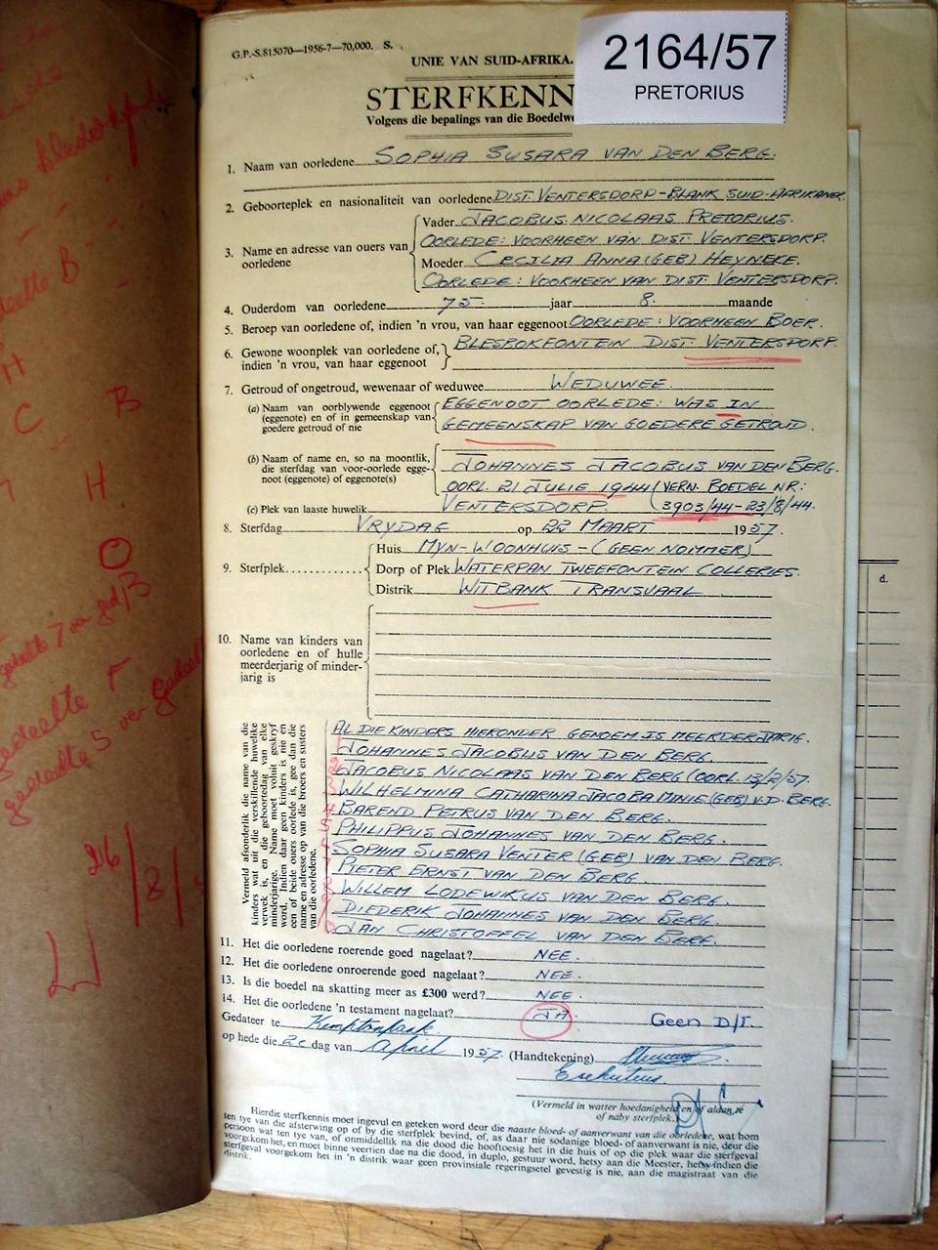 G.P.-S.815070—1956-7—70,000. S.
2164/57
PRETORIUS
UNIE VAN SUID-AFRIKA.
STERFKENN
Volgens die bepalings van die Boedelw
1. Naam van oorledene SOPHIA SUSARA VAN DEN BERG.
2. Geboorteplek en nasionaliteit van oorledene DIST. VENTERSDORP-BLANK SUID-AFRIKANER.
3. Name en adresse van ouers van oorledene
Vader JACOBUS NICOLAAS PRETORIUS.
OORLEDE: VOORHEEN VAN DIST. VENTERSDORP.
Moeder CECILIA ANNA (GEB) HEYNEKE.
OORLEDE: VOORHEEN VAN DIST. VENTERSDORP.
4. Ouderdom van oorledene 75 jaar 8 maande
5. Beroep van oorledene of, indien 'n vrou, van haar eggenoot OORLEDE: VOORHEEN BOER.
6. Gewone woonplek van oorledene of, BLESBOKFONTEIN DIST. VENTERSDORP.
indien 'n vrou, van haar eggenoot
7. Getroud of ongetroud, wewenaar of weduwee WEDUWEE.
(a) Naam van oorblywende eggenoot EGGENOOT OORLEDE: WAS IN
(eggenote) en of in gemeenskap van GEMEENSKAP VAN GOEDERE GETROUD.
goedere getroud of nie
(b) Naam of name en, so na moontlik,
die sterfdag van voor-oorlede egge- JOHANNES JACOBUS VAN DEN BERG.
noot (eggenote) of eggenote(s) OORL. 21 JULIE 1944 (VERN. BOEDEL NR:
(c) Plek van laaste huwelik VENTERSDORP. 3903/44-23/8/44.
8. Sterfdag VRYDAG op 22 MAART 1957.
9. Sterfplek
Huis MYN-WOONHUIS-(GEEN NOMMER)
Dorp of Plek WATERPAN TWEEFONTEIN COLLERIES.
Distrik WITBANK TRANSVAAL
10. Name van kinders van
oorledene en of hulle
meerderjarig of minder-
jarig is
Vermeld afsonderlik die name van die
kinders wat uit die verskillende huwelike
verwek is, en die geboortedag van elke
minderjarige. Name moet voluit geskryf
word. Indien daar geen kinders is nie en
een of beide ouers oorlede is, gee dan die
name en adresse op van die broers en susters
van die oorledene.
AL DIE KINDERS HIERONDER GENOEM IS MEERDERJARIG.
1 JOHANNES JACOBUS VAN DEN BERG.
2 JACOBUS NICOLAAS VAN DEN BERG (OORL. 13/2/57.
3 WILHELMINA CATHARINA JACOBA MINIE (GEB) V.D. BERG.
4 BAREND PETRUS VAN DEN BERG.
5 PHILIPPUS JOHANNES VAN DEN BERG.
6 SOPHIA SUSARA VENTER (GEB) VAN DEN BERG.
7 PIETER ERNST VAN DEN BERG.
8 WILLEM LODEWIKUS VAN DEN BERG.
9 DIEDERIK JOHANNES VAN DEN BERG.
10 JAN CHRISTOFFEL VAN DEN BERG.
11. Het die oorledene roerende goed nagelaat? NEE.
12. Het die oorledene onroerende goed nagelaat? NEE.
13. Is die boedel na skatting meer as £300 werd? NEE.
14. Het die oorledene 'n testament nagelaat? JA. Geen D/T.
Gedateer te Kemptonpark
op hede die dag van April 1957. (Handtekening)
Eksekuteur
(Vermeld in watter hoedanigheid en of aldan te
of naby sterfplek.)
Hierdie sterfkennis moet ingevul en geteken word deur die naaste bloed- of aanverwant van die oorledene, wat hom
ten tye van die afsterwing op of by die sterfplek bevind, of, as daar nie sodanige bloed- of aanverwant is nie, deur die
persoon wat ten tye van, of onmiddellik na die dood die hooftoesig het in die huis of op die plek waar die sterfgeval
voorgekom het, en moet binne veertien dae na die dood, in duplo, gestuur word, hetsy aan die Meester, hetsy indien die
sterfgeval voorgekom het in 'n distrik waar geen provinsiale regeringsetel gevestig is nie, aan die magistraat van die
distrik.
d.
deelte B
H
C B
H
O
gedeelte 7 van ged/B
gedeelte F
gedeelte 5 van gedeel
26/8/